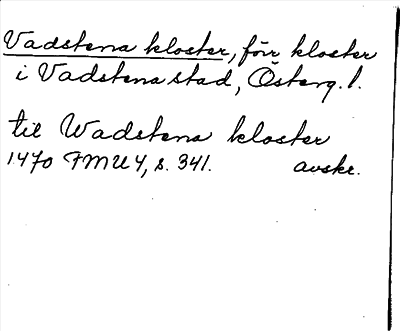 Vadstena kloster, förr kloster
i Vadstena stad, Österg. l.
til Wadstena kloster
1470 FMU 4, s. 341. avskr.